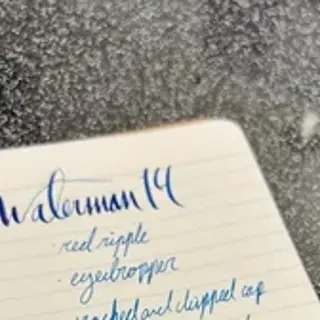 Waterman 14
· red ripple
· eyedropper
cracked and chipped cap